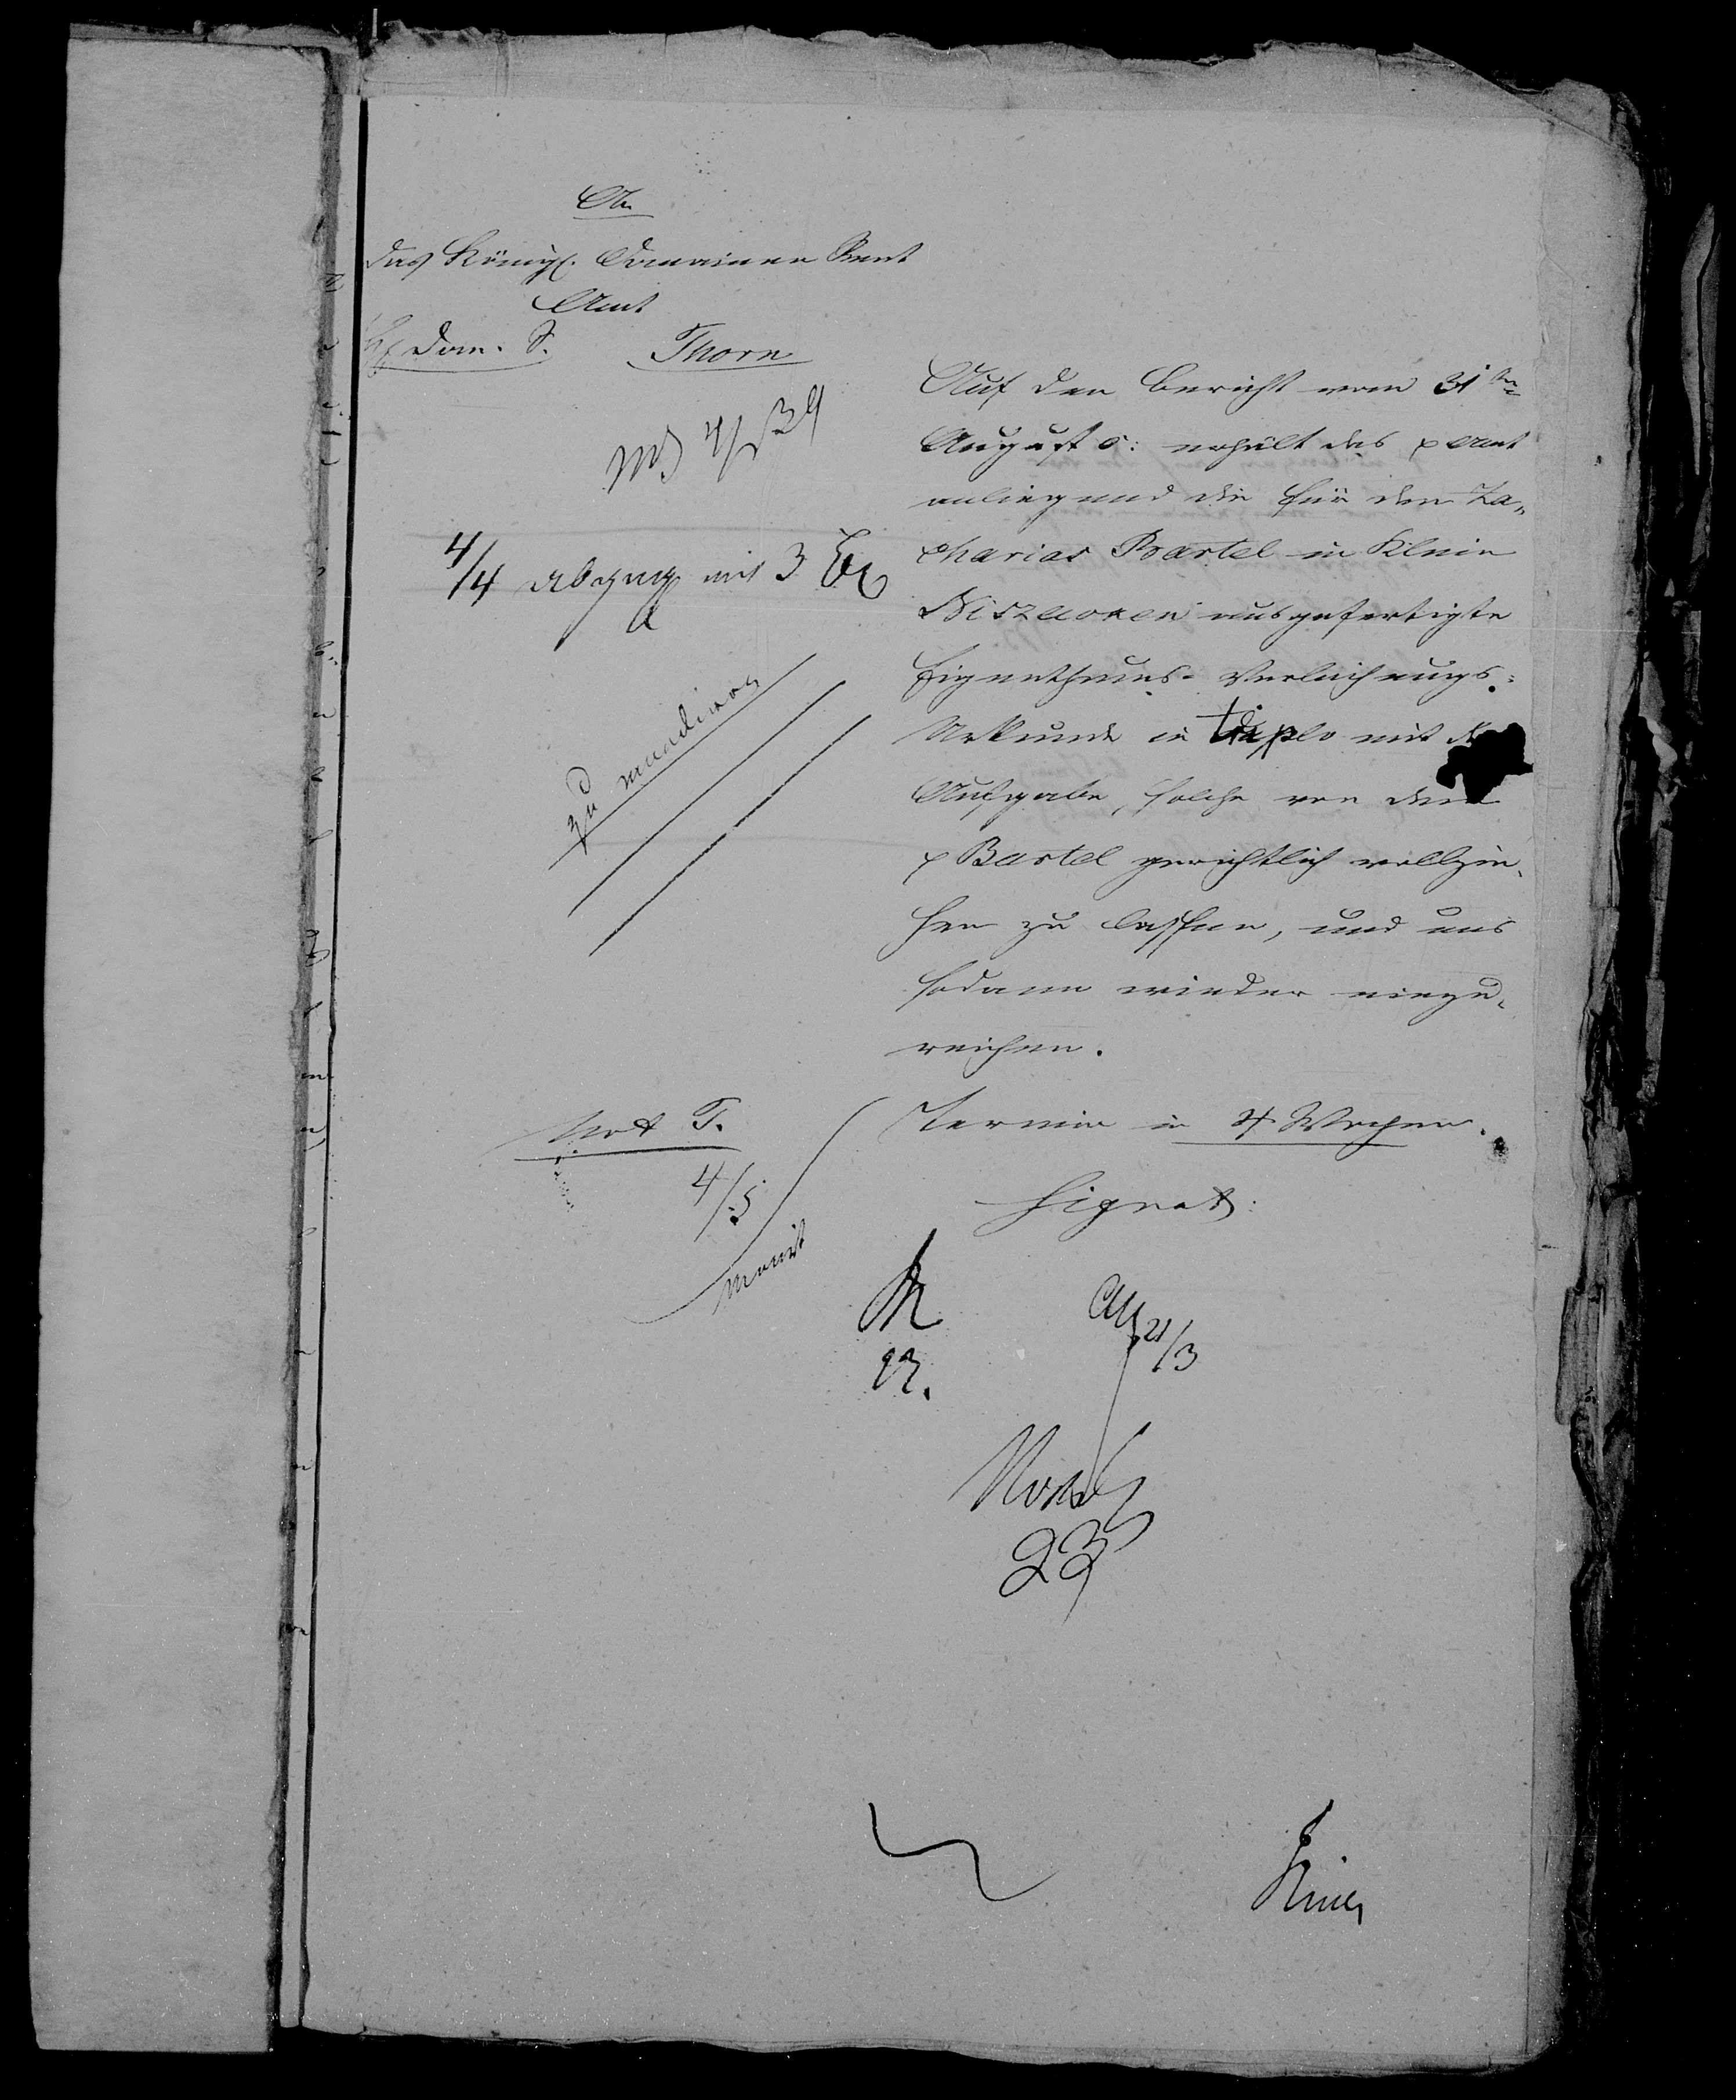 An
das Königl. Domainen Rent
Amt
Dom. S. Thorn
4/4 abgeg mit 3
zu mundiren
Auf den Bericht vom 31ten
August c: erhält das p Amt
anliegend die für den Za„
charias Bartel in Klein
Niszewken ausgefertigte
Eigenthums- Verleihungs-
Urkunde in triplo mit der
Aufgabe, solche von dem
p Bartel gerichtlich vollzie„
hen zu lassen, und uns
sodann wieder einzu„
reichen.
Termin in 4 Wochen.
Not T.
4/5
Monit
Signat:
21/3
23